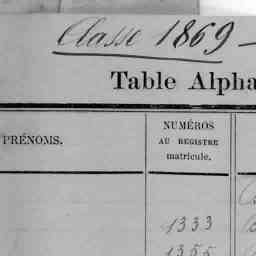 Classe 1869 -
Table Alpha
PRÉNOMS.
NUMÉROS
AU REGISTRE
matricule.
1333
1355